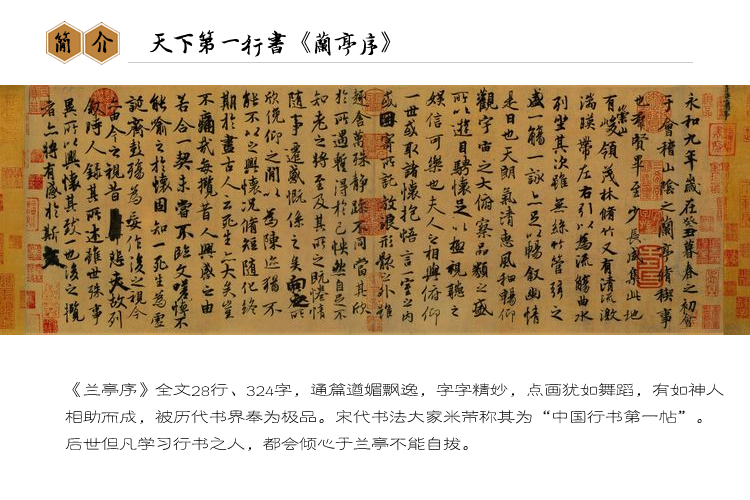 简介
天下第一行書《蘭亭序》
永和九年歲在癸丑暮春之初會
于會稽山陰之蘭亭脩禊事
也羣賢畢至少長咸集此地
有崇山峻領茂林脩竹又有清流激
湍暎帶左右引以為流觴曲水
列坐其次雖無絲竹管弦之
盛一觴一詠亦足以暢敘幽情
是日也天朗氣清惠風和暢仰
觀宇宙之大俯察品類之盛
所以遊目騁懷足以極視聽之
娛信可樂也夫人之相與俯仰
一世或取諸懷抱悟言一室之內
或因寄所託放浪形骸之外雖
趣舍萬殊靜躁不同當其欣
於所遇暫得於己怏然自足不
知老之將至及其所之既惓情
隨事遷感慨係之矣向之所
欣俛仰之間以為陳迹猶不
能不以之興懷況脩短隨化終
期於盡古人云死生亦大矣豈
不痛哉每攬昔人興感之由
若合一契未嘗不臨文嗟悼不
能喻之於懷固知一死生為虛
誕齊彭殤為妄作後之視今
亦由今之視昔悲夫故列
敘時人錄其所述雖世殊事
異所以興懷其致一也後之攬
者亦將有感於斯文
《兰亭序》全文28行、324字，通篇遒媚飘逸，字字精妙，点画犹如舞蹈，有如神人
相助而成，被历代书界奉为极品。宋代书法大家米芾称其为“中国行书第一帖”。
后世但凡学习行书之人，都会倾心于兰亭不能自拔。